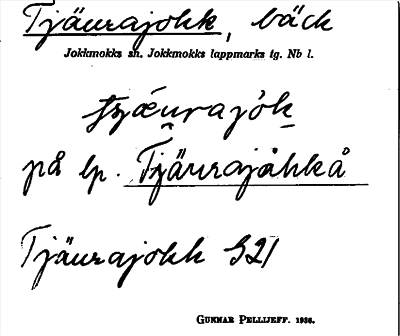 Tjäurajokk, bäck
Jokkmokks sn. Jokkmokks lappmarks tg. Nb l.
på lp. Tjäurajåhkå
Tjäurajokk S21
GUNNAR PELLIJEFF. 1936.